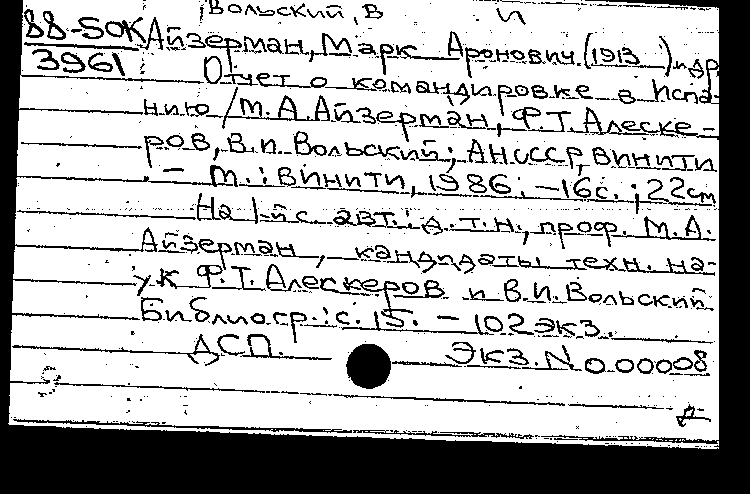 Вольский, В И
88-50К Айзерман, Марк Аронович (1913 ) и др
3961 Отчет о командировке в Испа-
нию / М.А. Айзерман, Ф.Т. Алеске-
ров, В.И. Вольский; АН СССР, ВИНИТИ
. – М.: ВИНИТИ, 1986. – 16 с.; 22 см
На 1-й с. авт.: д.т.н., проф. М.А.
Айзерман, кандидаты техн. на-
ук Ф.Т. Алескеров и В.И. Вольский.
Библиогр.: с. 15. – 102 экз.
ДСП. Экз. N 000008